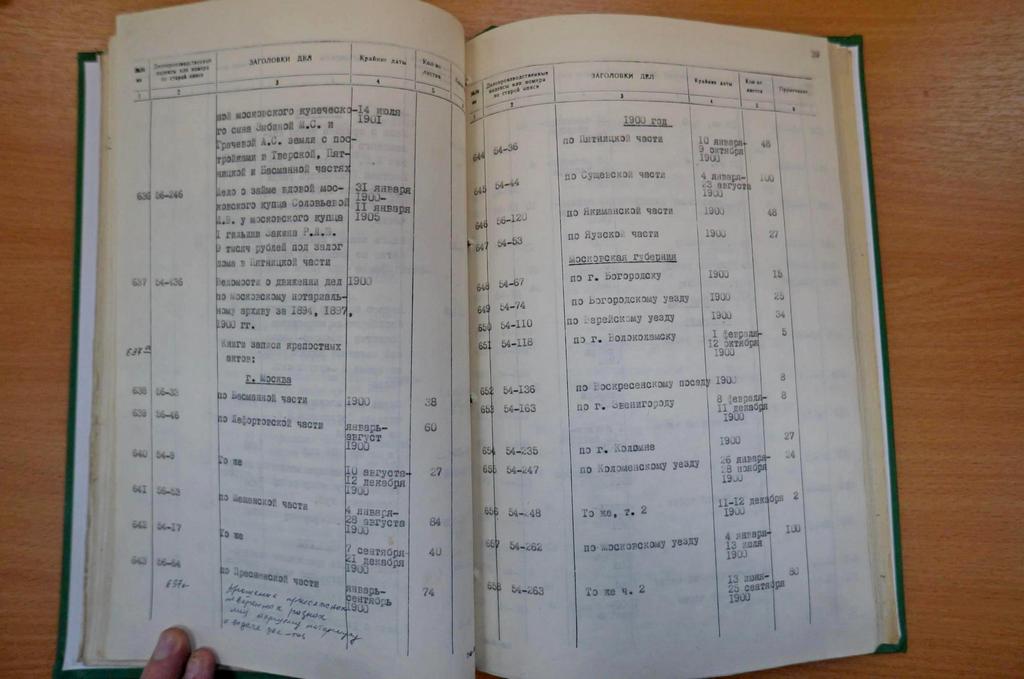 Делопроизводственные
индексы или номера
по старой описи
ЗАГОЛОВКИ ДЕЛ
Крайние даты
Кол-во
листов
1 2 3 4 5
ной московского купеческо-
го сына Зыбиной М.С. и
Грачевой А.С. земли с пос-
тройками в Тверской, Пят-
ницкой и Басманной частях
14 июля
1901
636 56-246
Дело о займе вдовой мос-
ковского купца Соловьевой
у московского купца
1 гильдии
9 тысяч рублей под залог
дома в Пятницкой части
31 января
1900-
11 января
1905
637 54-436
Ведомости о движении дел
по Московскому нотариаль-
ному архиву за 1894, 1897,
1900 гг.
1900
637а
Книги записи крепостных
актов:
г. Москва
638 56-33 по Басманной части 1900 38
639 56-46 по Лефортовской части
январь-
август
1900
60
640 54-8 То же
10 августа-
12 декабря
1900
27
641 56-53 по Мещанской части
4 января-
28 августа
1900
84
642 54-17 То же
7 сентября-
21 декабря
1900
40
643 56-64 по Пресненской части
январь-
сентябрь
1900
74
637а
39
Делопроизводственные
индексы или номера
по старой описи
ЗАГОЛОВКИ ДЕЛ
Крайние даты
Кол-во
листов
Примечание
2 3 4 5 6
1900 год
644 54-36 по Пятницкой части
10 января-
9 октября
1900
48
645 54-44 по Сущевской части
4 января-
23 августа
1900
100
646 56-120 по Якиманской части 1900 48
647 54-53 по Яузской части 1900 27
Московская губерния
648 54-67 по г. Богородску 1900 15
649 54-74 по Богородскому уезду 1900 25
650 54-110 по Верейскому уезду 1900 34
651 54-118 по г. Волоколамску
1 февраля-
12 октября
1900
5
652 54-136 по Воскресенскому посаду 1900 8
653 54-163 по г. Звенигороду
8 февраля-
11 декабря
1900
8
654 54-235 по г. Коломна 1900 27
655 54-247 по Коломенскому уезду
26 января-
28 ноября
1900
24
656 54-248 То же, т. 2
11-12 декабря
1900
2
657 54-262 по Московскому уезду
4 января-
13 июля
1900
100
658 54-263 То же ч. 2
13 июля-
25 сентября
1900
80